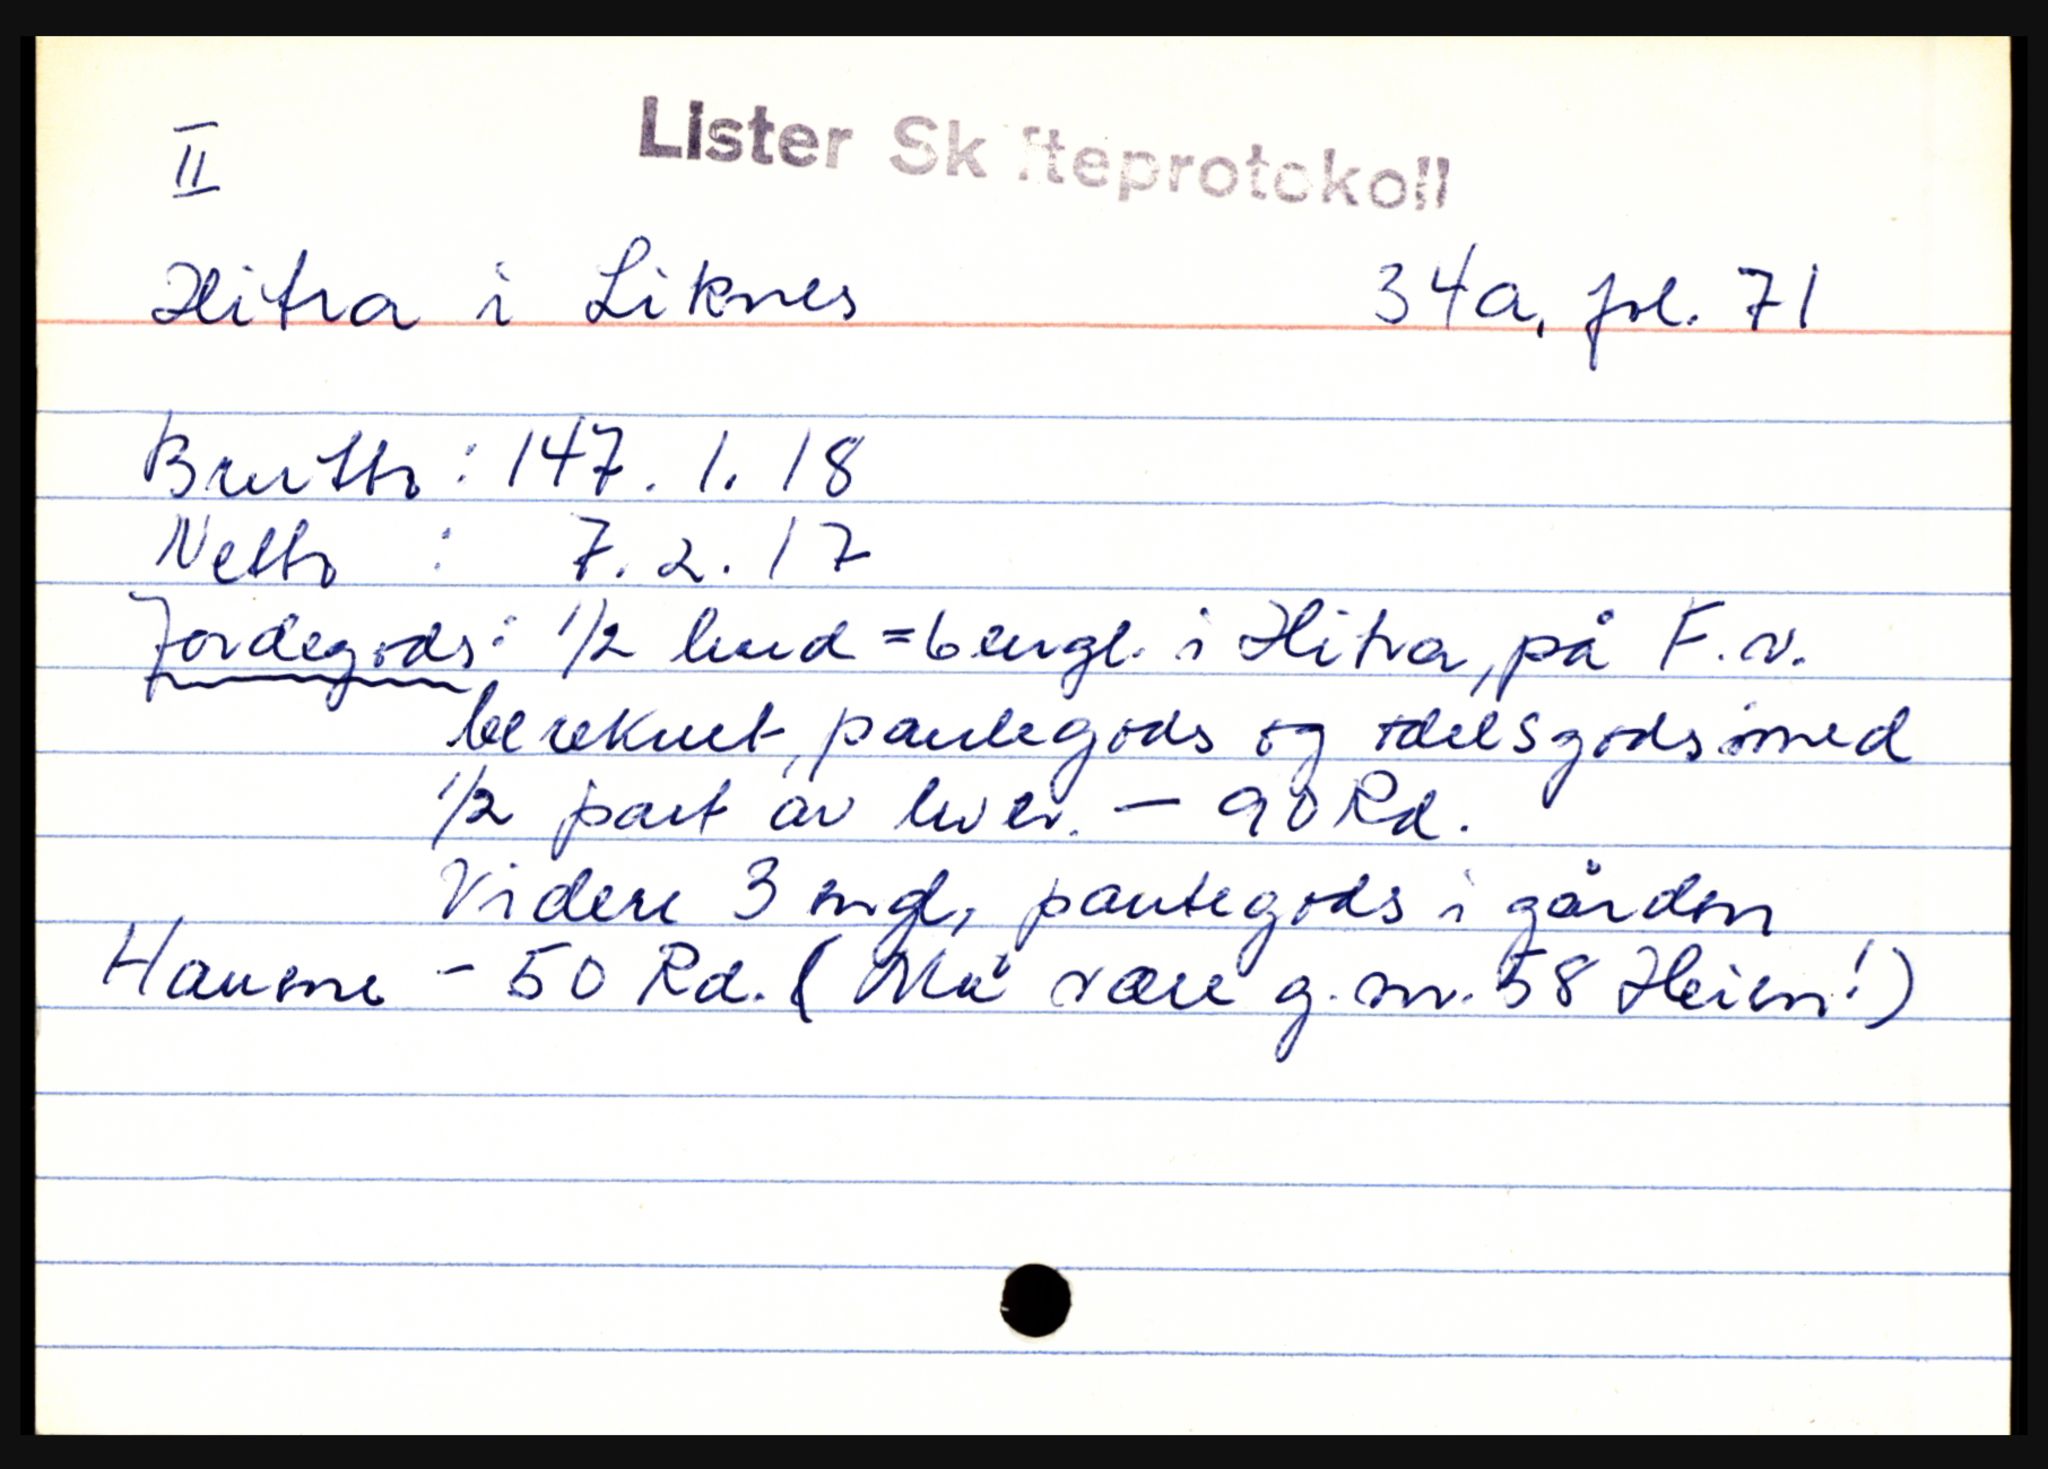 II
Lister Skifteprotokoll
Hitra i Liknes 34a, fol. 71
Brutto: 147. 1. 18
Netto : 7. 2. 17
Jordegods: 1/2 hud = 6 engl. i Hitra, på F.v.
bereknet, pantegods og odelsgods med
1/2 part av hver. - 90 Rd.
Videre 3 engl, pantegods i gården
Haugne - 50 Rd. (Må være g.nr. 58 Heien!)